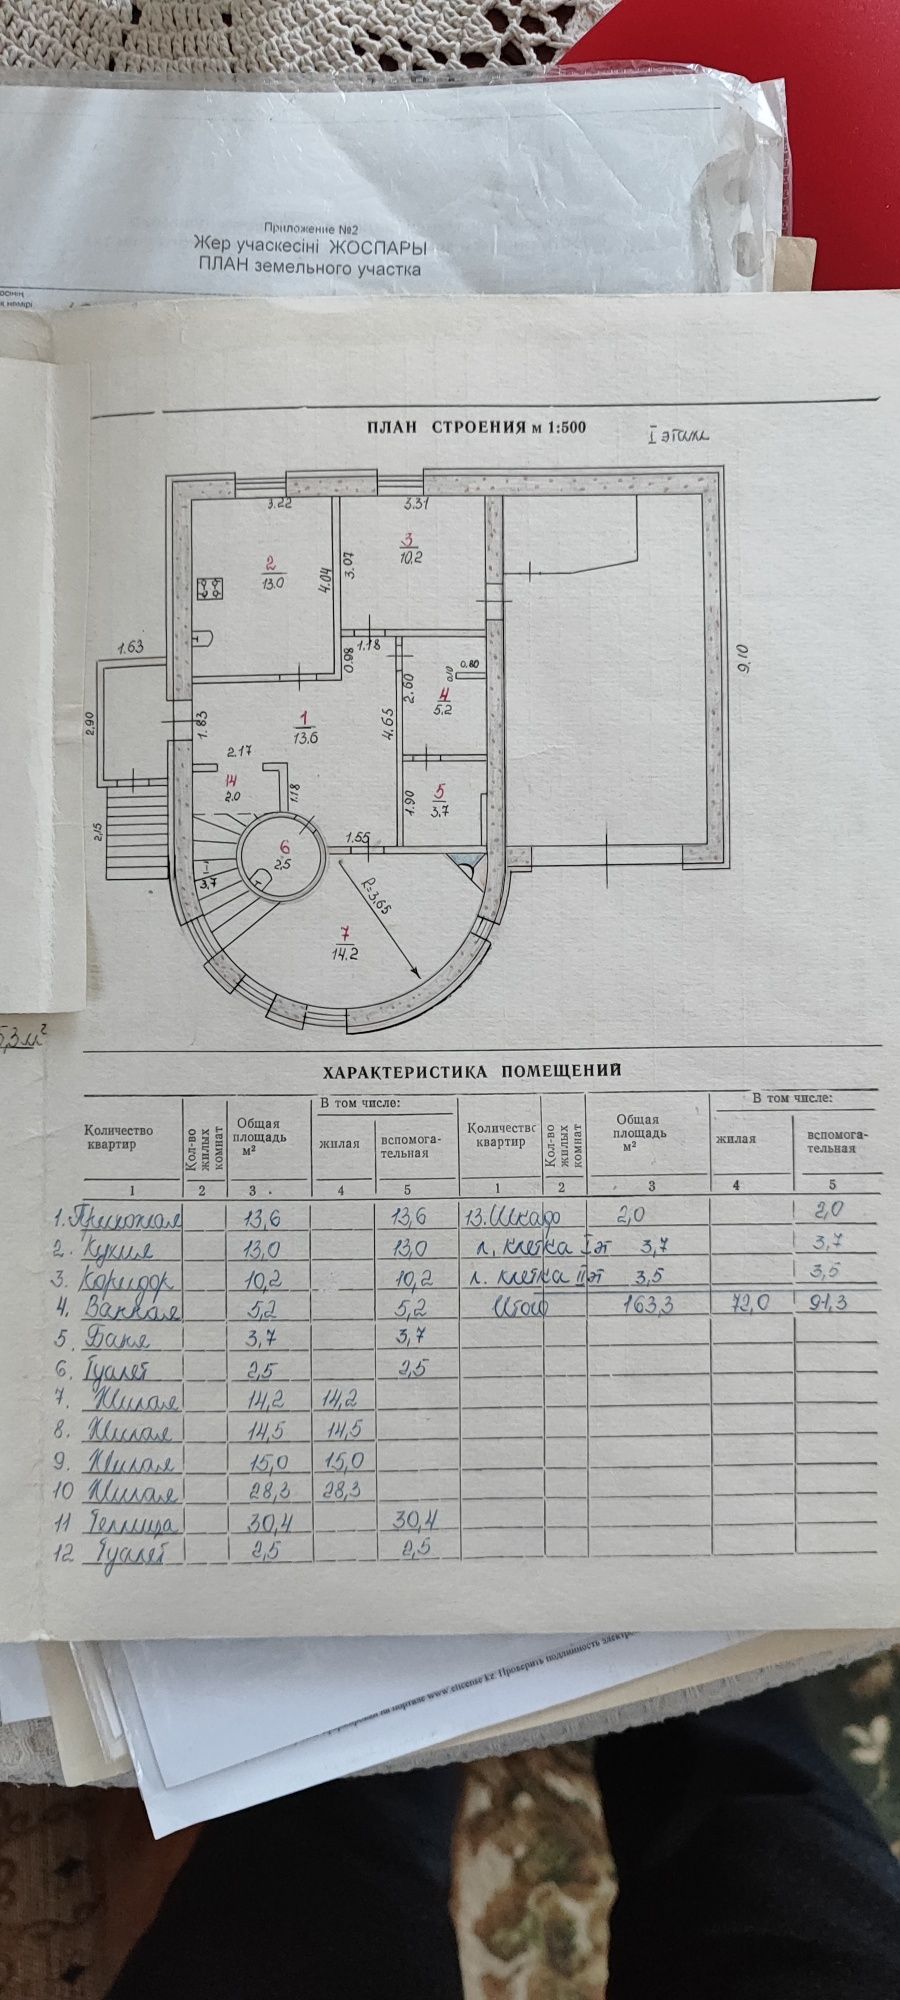 Приложение №2
Жер учаскесіні ЖОСПАРЫ
ПЛАН земельного участка
ПЛАН СТРОЕНИЯ м 1:500
I этаж
3.22
3.31
2
13.0
4.04
3.07
3
10.2
1.63
1.18
0.98
9.10
2.90
1.83
1
13.6
4.65
2.60
0.80
0.10
4
5.2
2.17
14
2.0
1.18
2.15
1.90
5
3.7
1.55
6
2.5
1-1
3.7
R=3.65
7
14.2
5,3 м²
ХАРАКТЕРИСТИКА ПОМЕЩЕНИЙ
Количество квартир Кол-во жилых комнат Общая площадь м² В том числе: жилая вспомога-тельная Количество квартир Кол-во жилых комнат Общая площадь м² В том числе: жилая вспомога-тельная
1 2 3 4 5 1 2 3 4 5
1. Прихожая 13,6 13,6 13. Шкаф 2,0 2,0
2. Кухня 13,0 13,0 л. клетка I эт 3,7 3,7
3. Коридор 10,2 10,2 л. клетка II эт 3,5 3,5
4. Ванная 5,2 5,2 Итог 163,3 72,0 91,3
5. Баня 3,7 3,7
6. Туалет 2,5 2,5
7. Жилая 14,2 14,2
8. Жилая 14,5 14,5
9. Жилая 15,0 15,0
10 Жилая 28,3 28,3
11 Теплица 30,4 30,4
12 Туалет 2,5 2,5
на портале www.elicense.kz. Проверить подлинность